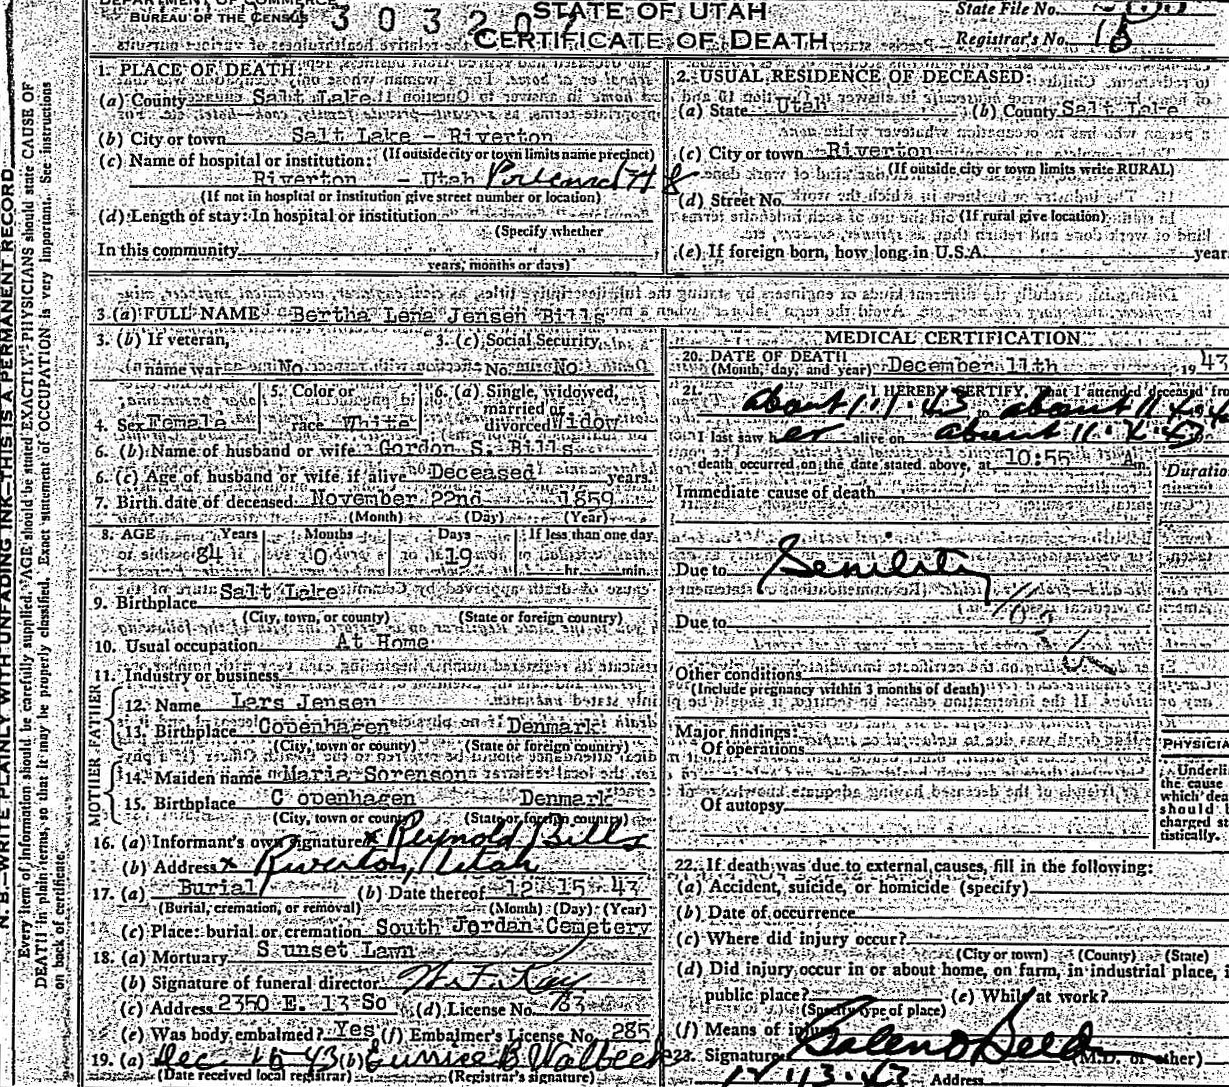 DEPARTMENT OF COMMERCE
BUREAU OF THE CENSUS
30320
STATE OF UTAH
CERTIFICATE OF DEATH
State File No.
Registrar's No. 18
N. B.—WRITE PLAINLY WITH UNFADING INK—THIS IS A PERMANENT RECORD.
Every item of information should be carefully supplied. AGE should be stated EXACTLY. PHYSICIANS should state CAUSE OF
DEATH in plain terms, so that it may be properly classified. Exact statement of OCCUPATION is very important. See instructions
on back of certificate.
1. PLACE OF DEATH:
(a) County Salt Lake
(b) City or town Salt Lake - Riverton
(If outside city or town limits name precinct)
(c) Name of hospital or institution:
Riverton - Utah
(If not in hospital or institution give street number or location)
(d) Length of stay: In hospital or institution
(Specify whether
In this community
years, months or days)
2. USUAL RESIDENCE OF DECEASED:
(a) State Utah (b) County Salt Lake
(c) City or town Riverton
(If outside city or town limits write RURAL)
(d) Street No.
(If rural give location)
(e) If foreign born, how long in U.S.A. year
3. (a) FULL NAME Bertha Lena Jensen Bills
3. (b) If veteran, 3. (c) Social Security
name war No No. No
4. Sex Female 5. Color or race White 6. (a) Single, widowed, married or divorced Widow
6. (b) Name of husband or wife Gordon S. Bills
6. (c) Age of husband or wife if alive Deceased years.
7. Birth date of deceased November 22nd 1859
(Month) (Day) (Year)
8. AGE Years Months Days If less than one day
84 0 19 hr. min.
9. Birthplace Salt Lake
(City, town, or county) (State or foreign country)
10. Usual occupation At Home
11. Industry or business
FATHER
12. Name Lars Jensen
13. Birthplace Copenhagen Denmark
(City, town or county) (State or foreign country)
MOTHER
14. Maiden name Maria Sorenson
15. Birthplace C openhagen Denmark
(City, town or county) (State or foreign country)
16. (a) Informant's own signature x Reynold Bills
(b) Address x Riverton, Utah
17. (a) Burial (b) Date thereof 12 - 15 - 43
(Burial, cremation, or removal) (Month) (Day) (Year)
(c) Place: burial or cremation South Jordan Cemetery
18. (a) Mortuary S unset Lawn
(b) Signature of funeral director
(c) Address 2350 E. 13 So (d) License No.
(e) Was body embalmed? Yes (f) Embalmer's License No. 285
19. (a) Dec 43 (b) Eunice B
(Date received local registrar) (Registrar's signature)
MEDICAL CERTIFICATION
20. DATE OF DEATH
(Month, day, and year) December 11th 1943
21. I HEREBY CERTIFY, That I attended deceased
about to about
I last saw her alive on about
death occurred on the date stated above, at 10:55 A m.
Immediate cause of death
Duration
Due to Senility
Due to
Other conditions
(Include pregnancy within 3 months of death)
Major findings:
Of operations
Of autopsy
PHYSICI
Underli
the cause
which dea
should
charged st
tistically.
22. If death was due to external causes, fill in the following:
(a) Accident, suicide, or homicide (specify)
(b) Date of occurrence
(c) Where did injury occur?
(City or town) (County) (State)
(d) Did injury occur in or about home, on farm, in industrial place,
public place? (e) While at work?
(Specify type of place)
(f) Means of injury
23. Signature (M.D. or other)
12 13 43 Address